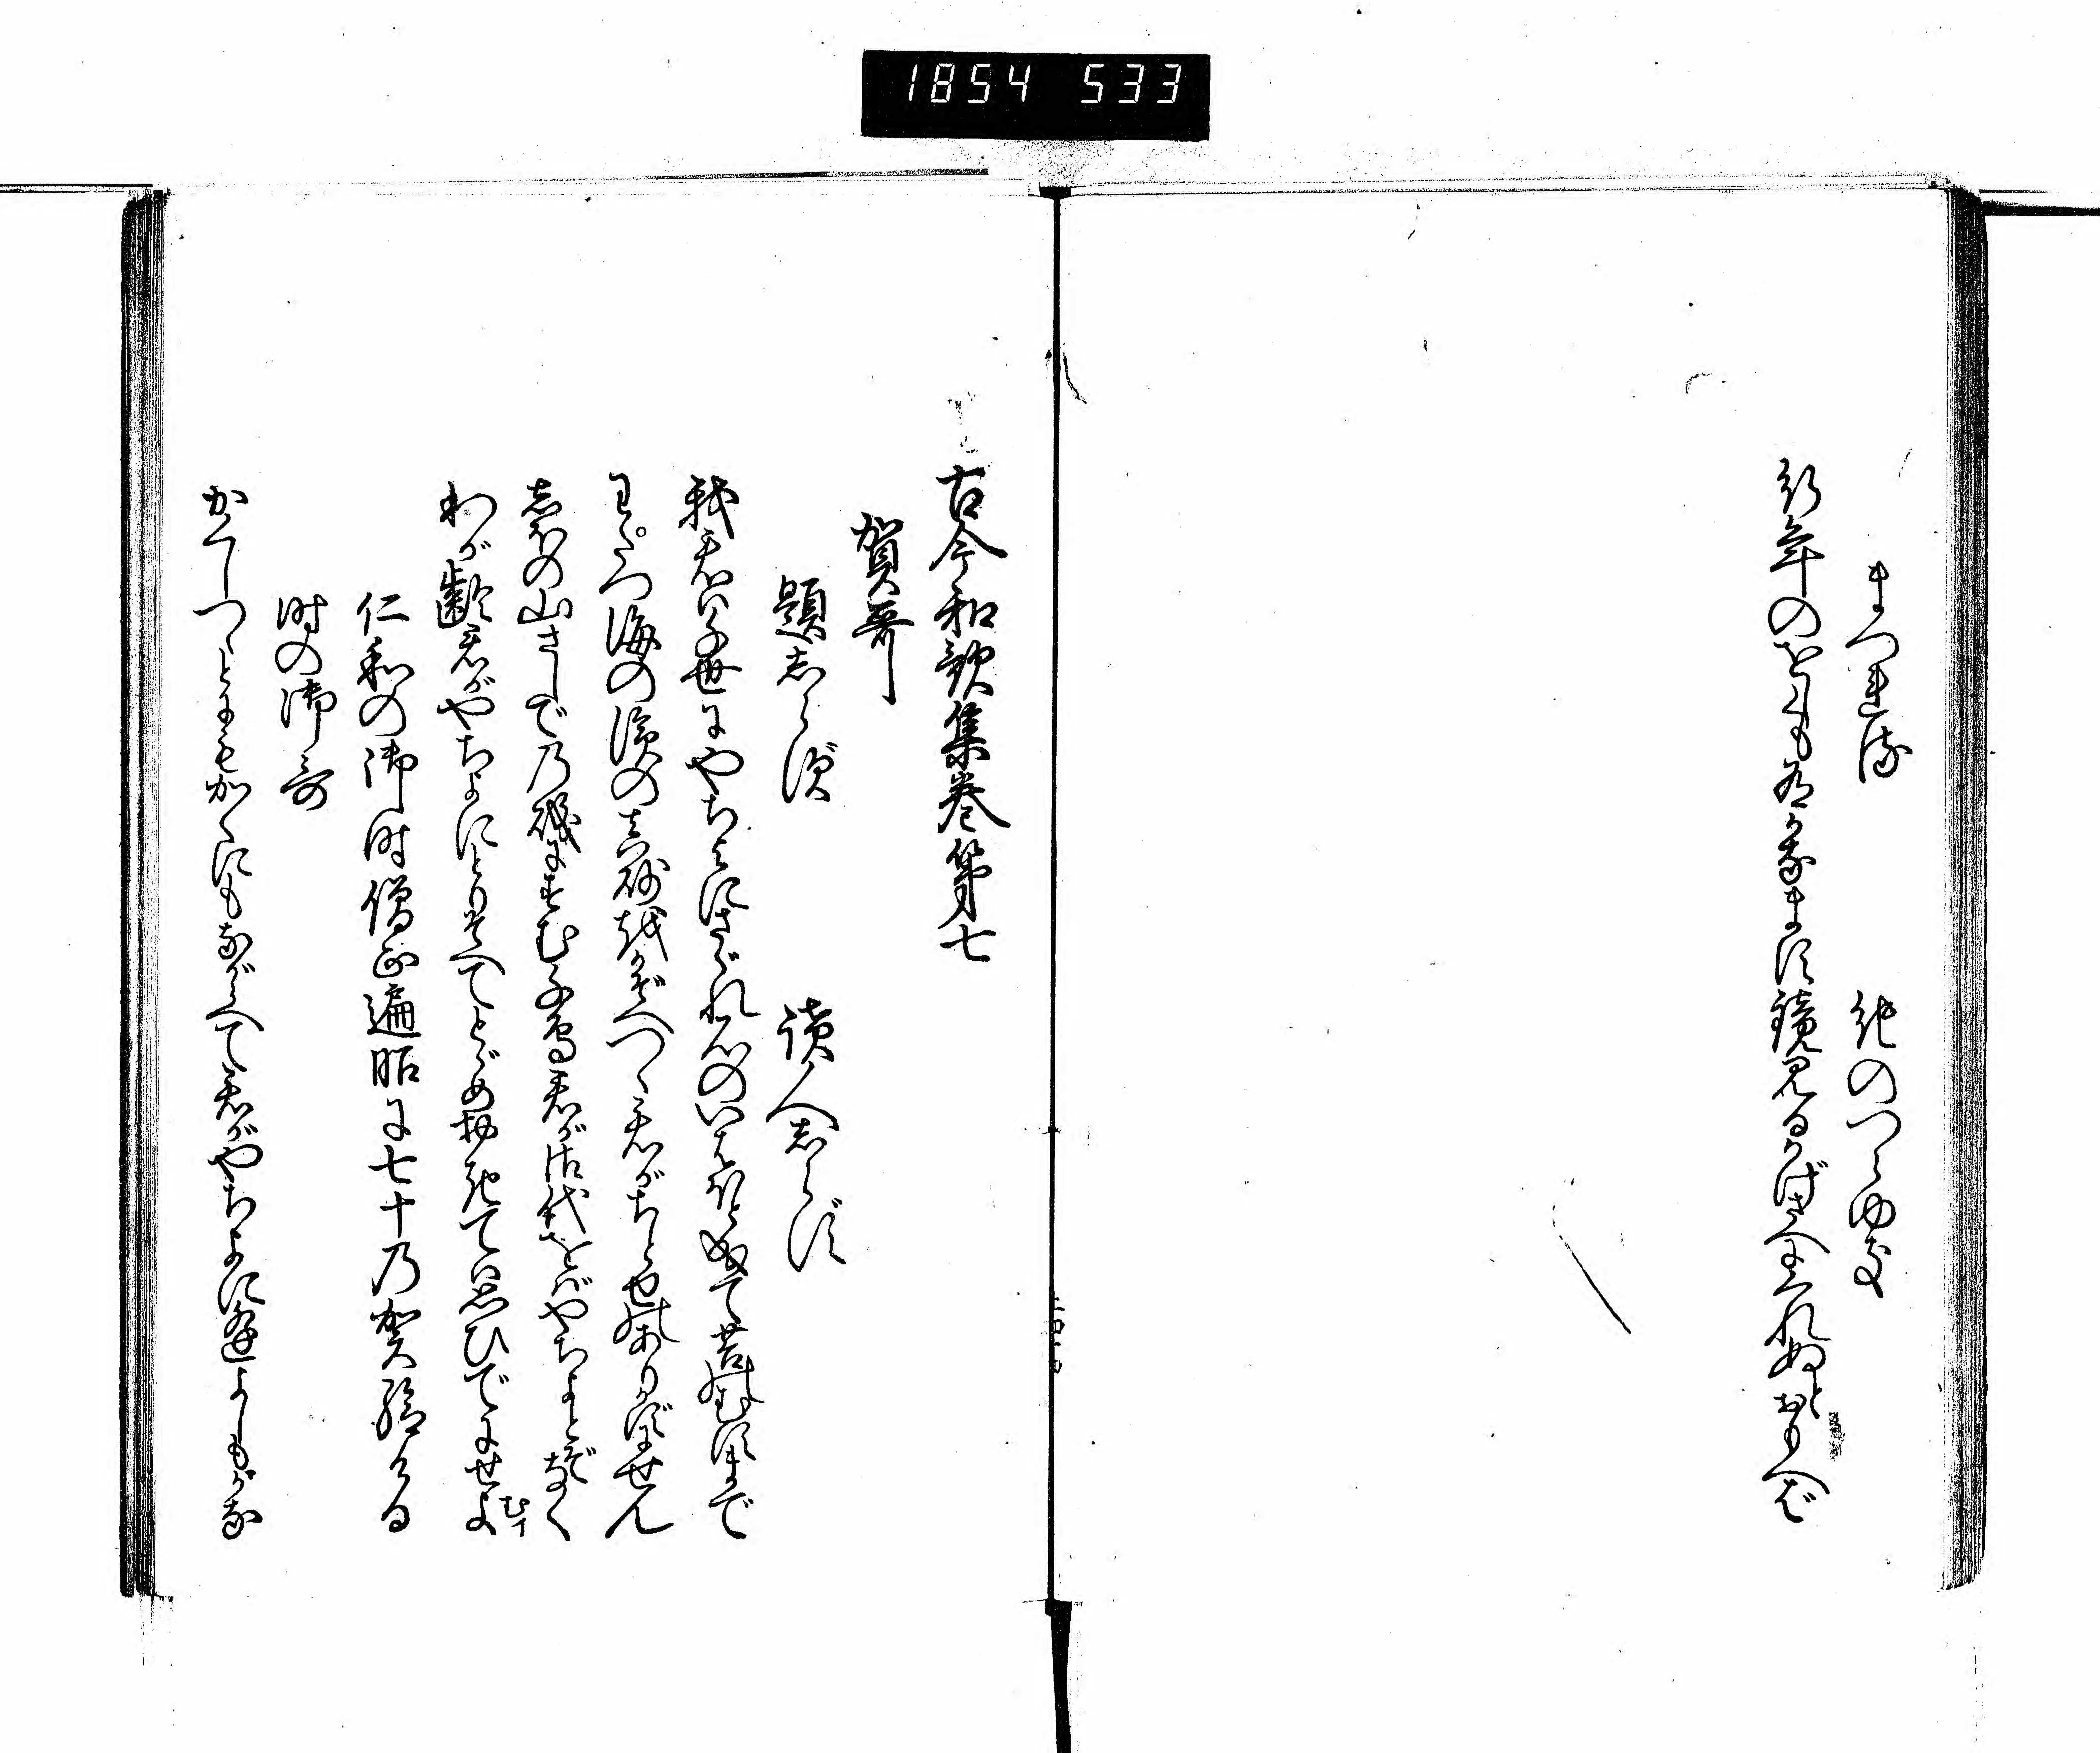 1854 533
まつれる 紀のつらゆき
行年のをしくも有かなます鏡見るかげさへにくれぬとおもへば
古今和歌集巻第七
賀哥
題志らず 読人志らず
我君は千世にやちよにさゞれ石のいはほと成て苔のむすまで
わたつ海の濱の真砂をかぞへつゝ君がちとせのありかずにせん
志ほの山さしでの磯にすむ千鳥君が御代をばやちよとぞなく
わが齢君がやちよにとりそへてとゞめおきては思ひでにせよ
む イ
仁和の御時僧正遍昭に七十の賀給ける
時の御哥
かくしつゝとにもかくにもながらへて君がやちよに逢よしもがな